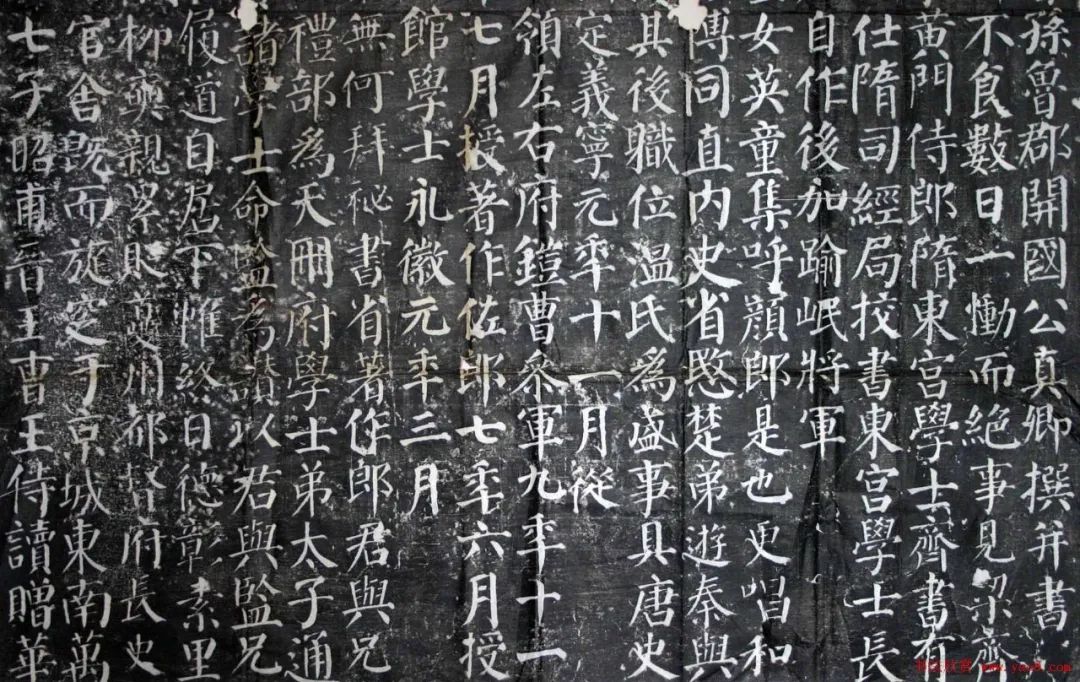 孫魯郡開國公真卿撰并書
不食數日一慟而絕事見梁齊
黃門侍郎隋東宮學士齊書有
仕隋司經局校書東宮學士長
自作後加踰岷將軍
女英童集呼顏郎是也更唱和
博同直內史省愍楚弟遊秦與
其後職位溫氏為盛事具唐史
定義寧元年十一月從
領左右府鎧曹參軍九年十一
七月授著作佐郎七年六月授
館學士永徽元年三月
無何拜祕書省著作郎君與兄
禮部為天冊府學士弟太子通
諸學士命監為讚以君與監兄
履道日居下帷終日德彰素里
柳奭親累貶夔州都督府長史
官舍既而旋窆于京城東南萬
七子昭甫晉王曹王侍讀贈華
书法欣赏 www.yac8.com